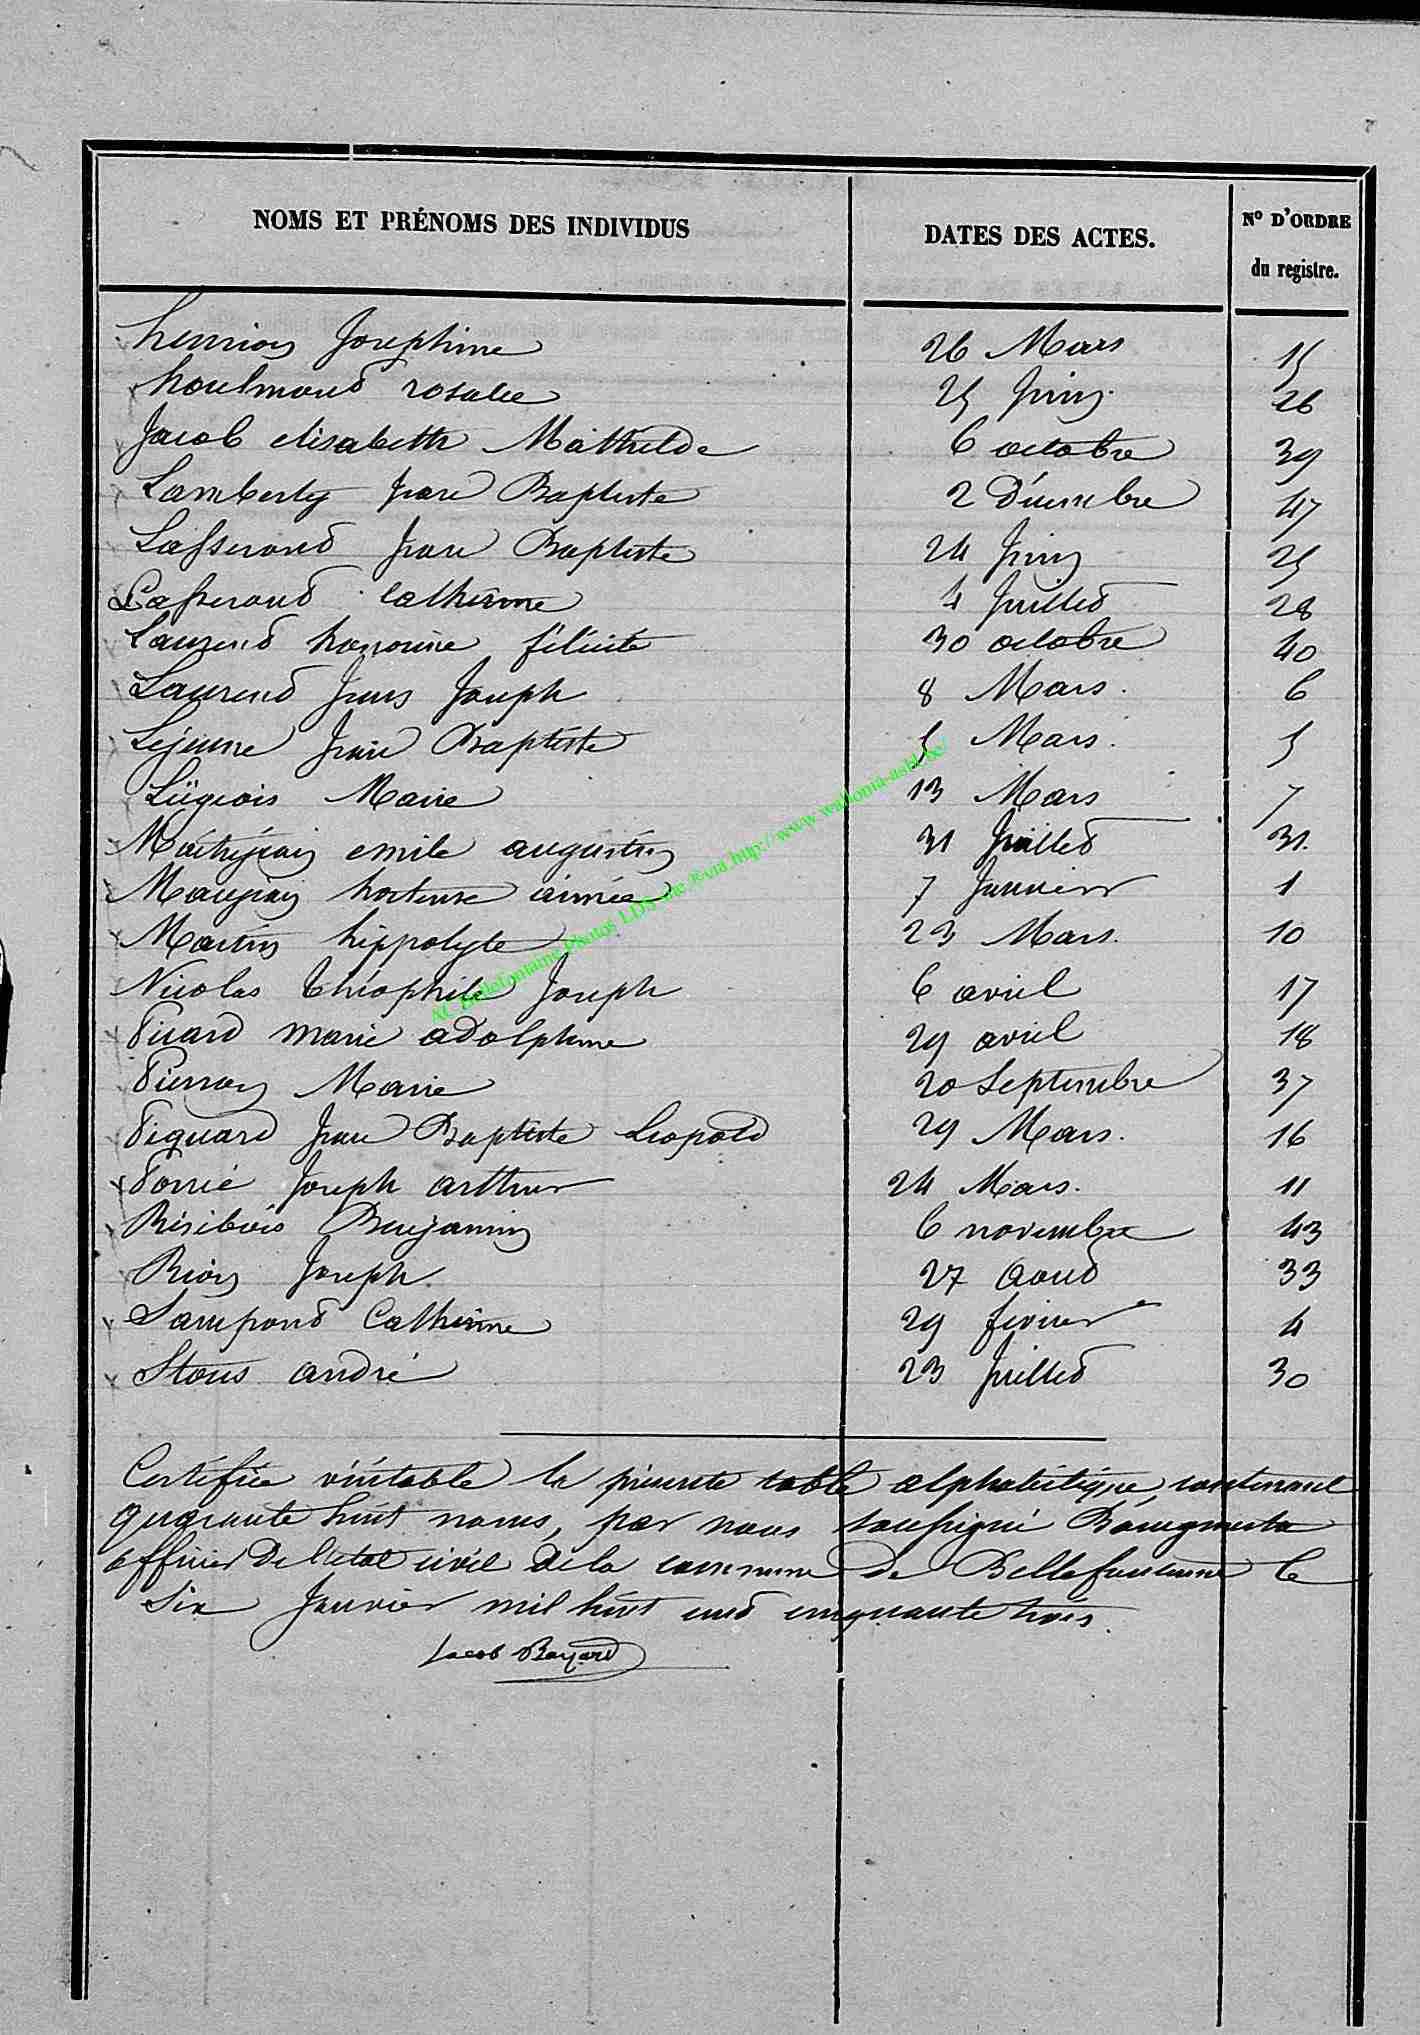 NOMS ET PRÉNOMS DES INDIVIDUS DATES DES ACTES. N° D'ORDRE
du registre.
henrion Josephine 26 Mars 15
houlmont rosalie 25 Juin 26
Jacob elisabeth Mathilde 6 octobre 39
Lamberty Jean Baptiste 2 Décembre 47
Lasserand Jean Baptiste 24 Juin 25
Lasserand Catherine 4 Juillet 28
Laurend honorine félicité 30 octobre 40
Laurend Jean Joseph 8 Mars. 6
Lejeune Jean Baptiste 5 Mars. 5
Liégeois Marie 13 Mars 7
emile augustin 31 Juillet 31.
Maugain hortense aimée 7 Janvier 1
Martin hippolyte 23 Mars. 10
Nicolas théophile Joseph 6 avril 17
Pirard marie adolphine 29 avril 18
Pierron Marie 20 Septembre 37
Piquard Jean Baptiste Léopold 29 Mars. 16
Porrié Joseph arthur 24 Mars. 11
Résibois Benjamin 6 novembre 43
Rion Joseph. 27 aoud 33
Sampond Catherine 29 février 4
Stous andré 23 Juillet 30
Certifiée véritable la présente table alphabétique contenant
quarante huit noms, par nous soussigné Bourgmestre
officier de l'état civil de la commune de Bellefontaine le
Six Janvier mil huit cend cinquante trois.
Jacob Bayard
AC Bellefontaine Photos LDS via http://www.wallonia-asbl.be/